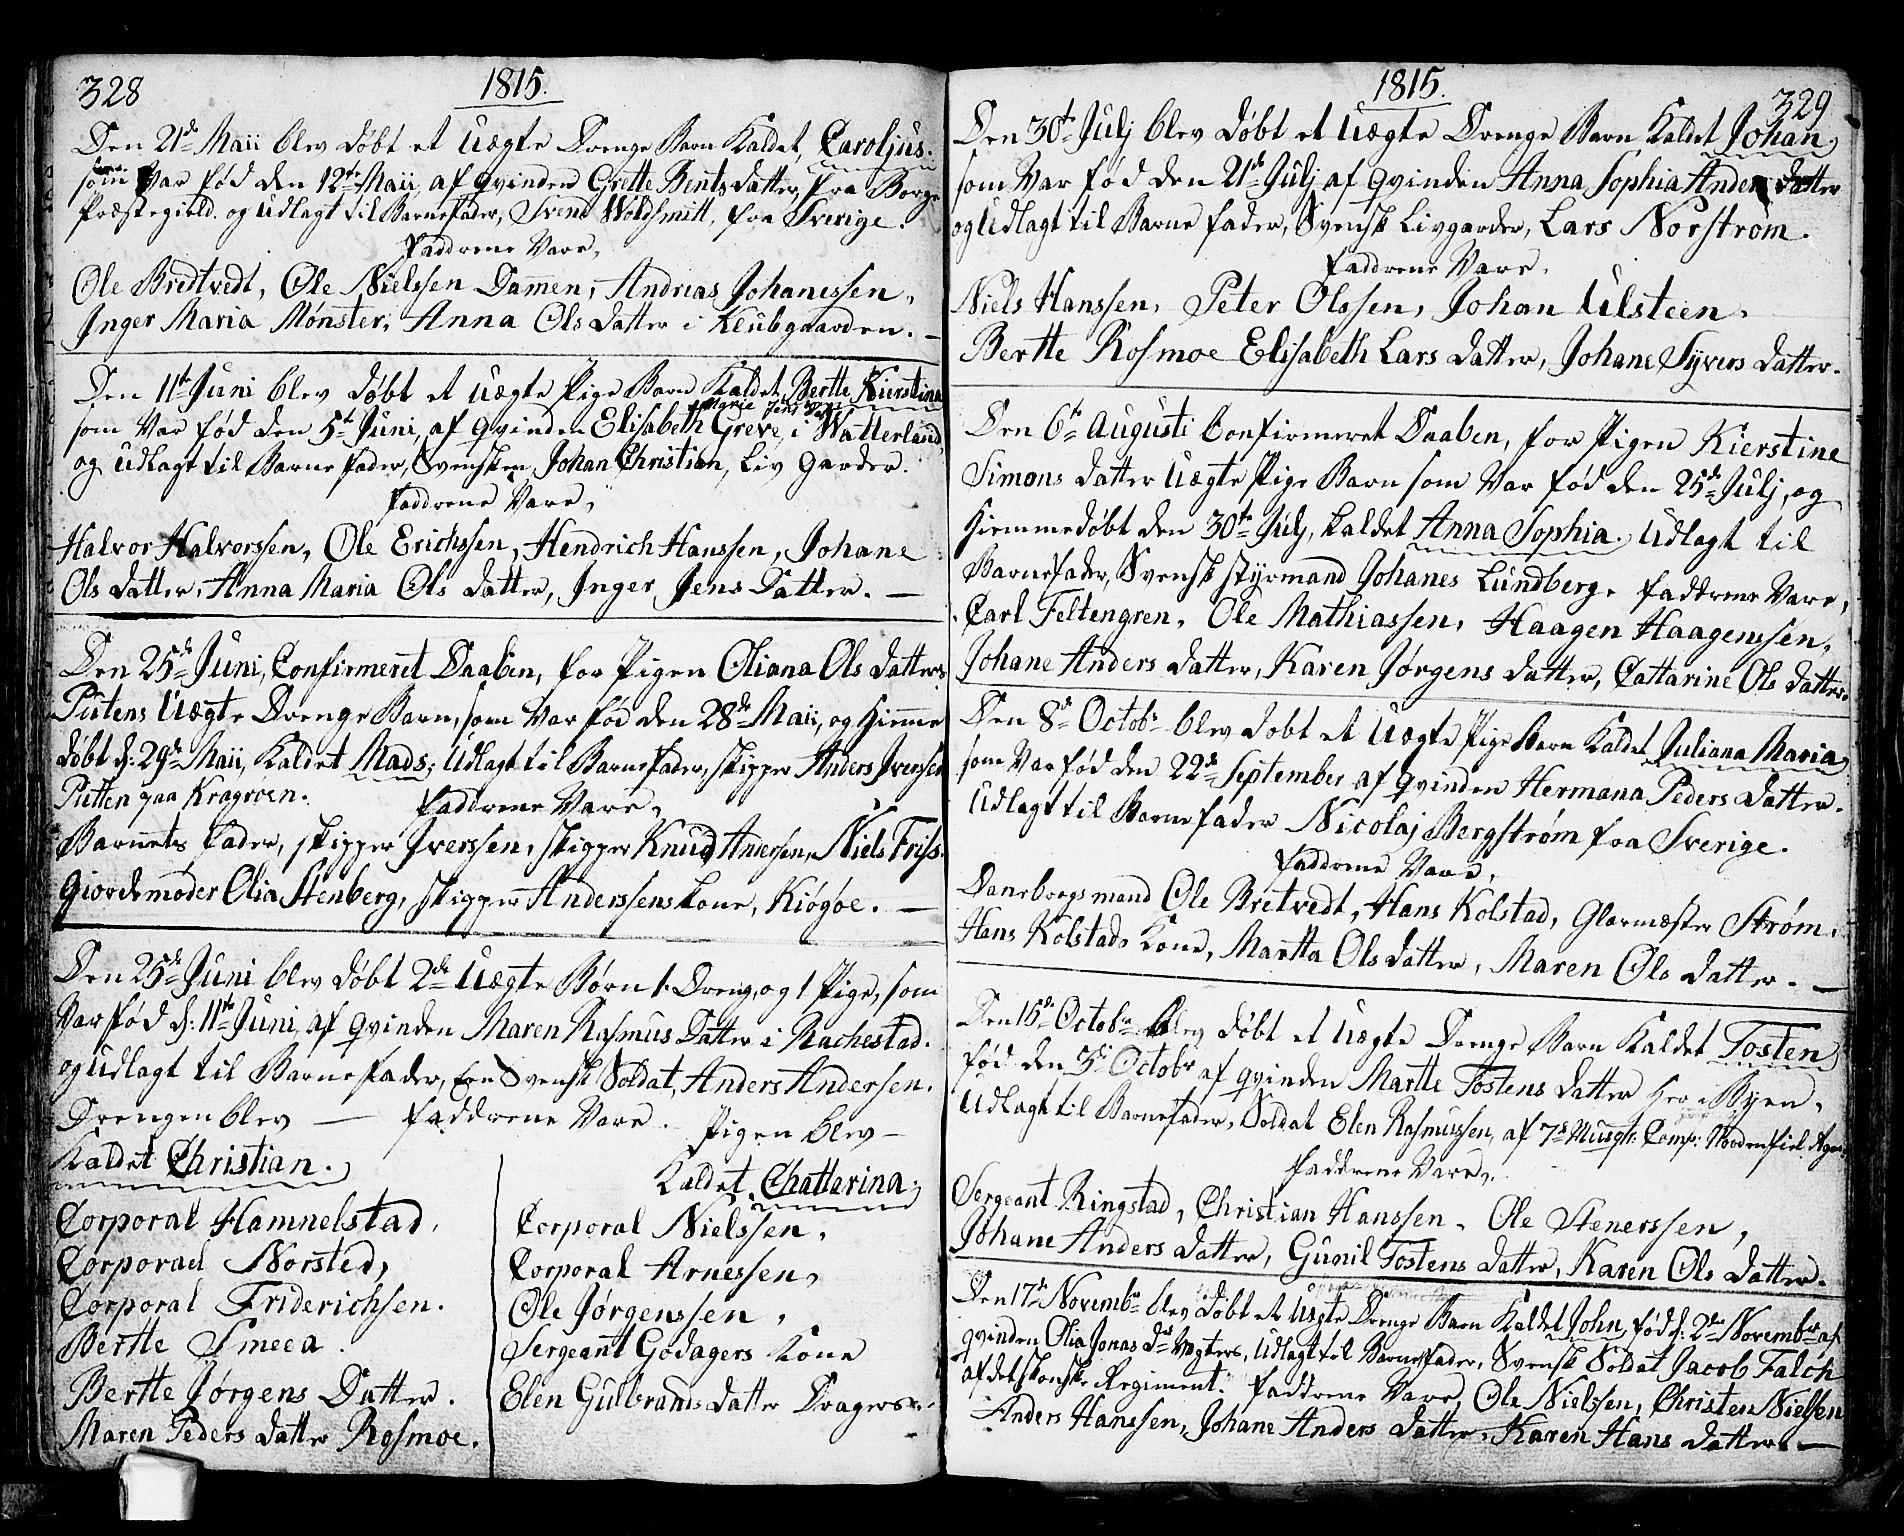 328
1815.
Den 21de Maii blev døbt et Uægte Drenge Barn Kaldet, Caroljus.
som Var fød den 12te Maii, af qvinden Grette Bentsdatter, fra Borge
Præstegield. og Udlagt til Barnefader, Svend Woldsmitt, fra Sverige.
Faddrene Vare,
Ole Bredtvedt, Ole Nielssen Dammen, Andrias Johanessen,
Inger Maria Mønster, Anna Ols datter i Klubgaarden.
Den 11te Juni blev døbt et Uægte Pige Barn Kaldet, Bertte Kierstina
Marie Jens Dat
som Var fød den 5te Juni, af qvinden Elisabeth Greve, i Watterland,
og Udlagt til Barne fader, Svensken Johan Christian, Liv Garder.
Faddrene Vare,
Halvor Halvorssen, Ole Erichssen, Hendrich Hanssen, Johane
Ols datter, Anna Maria Ols datter, Inger Jens Datter.
Den 25de Juni, Confirmeret Daaben, for Pigen Oliana Ols datter
Putens Uægte Drenge Barn, som Var fød den 28de Maii, og Hiemme
døbt d: 29de Maii, Kaldet Mads, Udlagt til Barnefader, skipper Anders Iversen
Putten paa Kragroen. Faddrene Vare,
Barnets Fader, skipper Iverssen, skipper Knud Andersen, Niels Friis.
Giordemoder Olia Stenberg, skipper Anderssens Kone, Kiøgøe.
Den 25de Juni blev døbt 2de Uægte Børn 1. Dreng, og 1 Pige, som
Var fød d: 11te Juni, af qvinden Maren Rasmus Datter i Rachestad.
og Udlagt til Barnefader, Een Svensk Soldat, Anders Andersen.
Drengen blev — Faddrene Vare. Pigen blev —
Kaldet Christian.
Kaldet, Chattarina,
Corporal Hamnelstad,
Corporal Norsted,
Corporal Friderichsen.
Bertte Smeea.
Bertte Jørgens Datter.
Maren Peders datter Rosmoe.
Corporal Nielssen,
Corporal Arnessen,
Ole Jørgenssen,
Sergeant Godagers Kone
Elen Gulbrands datter Dragers
329
1815.
Den 30te Julj blev døbt et Uægte Drenge Barn Kaldet Johan,
som Var fød den 21de Julj af qvinden Anna Sophia Anders Datter
og Udlagt til Barne fader, Svensk Livgarder, Lars Norstrøm.
Faddrene Vare,
Niels Hanssen, Peter Olssen, Johan Ulsteen,
Bertte Rosmoe Elisabeth Lars datter, Johane Syvers datter.
Den 6te Augusti Confirmeret Daaben, for Pigen Kierstine
Simons datter Uægte Pige Barn som Var fød den 25de Julj, og
Hiemmedøbt den 30te Julj, Kaldet Anna Sophia. Udlagt til
Barnefader, Svensk styrmand Johanes Lundberg. Faddrene Vare,
Carl Feltengren, Ole Mathiassen, Haagen Haagenssen,
Johane Anders datter, Karen Jørgens datter, Cattarine Ols datter.
Den 8de Octobr blev døbt et Uægte Pige Barn Kaldet Juliana Maria,
som Var fød den 22de September af qvinden Hermana Peders datter.
Udlagt til Barnefader Nicolaj Bergstrøm fra Sverige.
Faddrene Vare,
Daneborgsmand Ole Bretvedt, Hans Kolstad, Glarmæster Strøm.
Hans Kolstads Kone, Martta Ols datter, Maren Ols datter.
Den 15de Octobr blev døbt et Uægte Drenge Barn Kaldet Tosten
fød den 3di Octobr af qvinden Martte Tostens datter her i Byen,
Udlagt til Barnefader, Soldat Elen Rasmussen, af 7de Musqt: Comp:
Faddrene Vare,
Sergeant Ringstad, Christian Hanssen, Ole Stenerssen,
Johane Anders datter, Gunil Tostens datter, Karen Ols datter.
Den 17de Novembr blev døbt et Uægte Drenge Barn Kaldet John, fød d: 2de Novembr af
qvinden Olia Jonas dr Vægters, Udlagt til Barnefader, Svensk Soldat Jacob Falch
af det skonske Regiment. Faddrene Vare, Ole Nielssen, Christen Nielsen
Anders Hanssen, Johane Anders datter, Karen Hans datter.